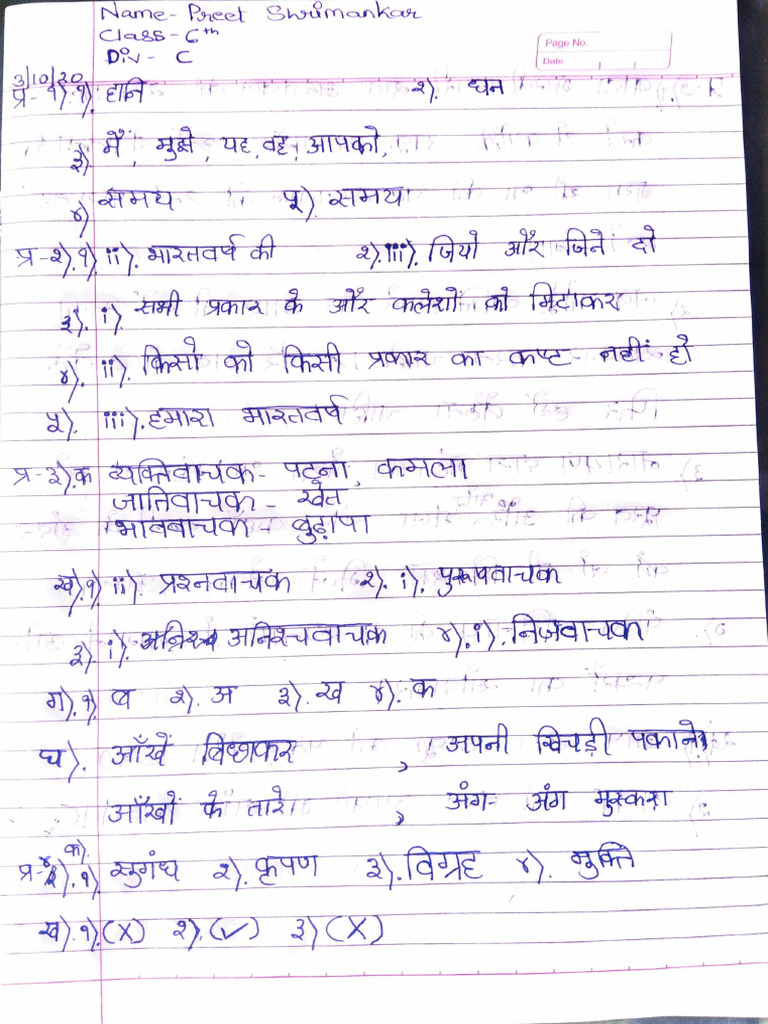 Name- Preet Shrimankar
Class- 6th
Div- C
Page No.
Date
3/10/20
प्र- १).१). हानि २). धन
३) मैं, मुझे, यह, वह, आपको,
४) समय ५). समय
प्र-२).१) ii). भारतवर्ष की २).iii). जियो और जिने दो
३). i). सभी प्रकार के और कलेशों को मिटाकर
४). ii). किसो को किसी प्रकार का कष्ट नहीं हो
५). iii). हमारा भारतवर्ष
प्र-३).क व्यक्तिवाचक- पटना, कमला
जातिवाचक - खेत
भावबाचक - बुढ़ापा
ख).१) ii). प्रश्नवाचक २). i). पुरुषवाचक
३). i). अनिश्चवाचक ४).i). निजवाचक
ग).१) ब २). अ ३).ख ४). क
घ). आँखें बिछाकर , अपनी खिचड़ी पकाने
आँखों के तारे , अंग- अंग मुस्करा
प्र-४ क). १) सुगंध २). कृपण ३).विग्रह ४). मुक्ति
ख).१).(X) २).(✓) ३) (X)